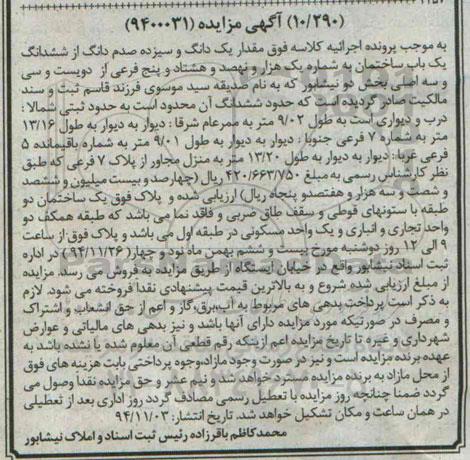 (۱۰/۲۹۰) آگهی مزایده (۹۴۰۰۰۳۱)
به موجب پرونده اجرائیه کلاسه فوق مقدار یک دانگ و سیزده صدم دانگ از ششدانگ
یک باب ساختمان به شماره یک هزار و نهصد و هشتاد و پنج فرعی از دویست و سی
و سه اصلی بخش دو نیشابور که به نام صدیقه سید موسوی فرزند قاسم ثبت و سند
مالکیت صادر گردیده است که حدود ششدانگ آن محدود است به حدود ثبتی شمالا :
درب و دیواری است به طول ۹/۰۲ متر به ممرعام شرقا : دیوار به دیوار به طول ۱۳/۱۶
متر به شماره ۷ فرعی جنوبا : دیوار به دیوار به طول ۹/۰۱ متر به شماره باقیمانده ۵
فرعی غربا: دیوار به دیوار به طول ۱۳/۲۰ متر به منزل مجاور از پلاک ۷ فرعی که طبق
نظر کارشناس رسمی به مبلغ ۴۲۰/۶۶۳/۷۵۰ ریال (چهارصد و بیست میلیون و ششصد
و شصت و سه هزار و هفتصدو پنجاه ریال) ارزیابی شده و پلاک فوق یک ساختمان دو
طبقه با ستونهای قوطی و سقف طاق ضربی و فاقد نما می باشد که طبقه همکف دو
واحد تجاری و انباری و یک واحد مسکونی در طبقه اول می باشد و پلاک فوق از ساعت
۹ الی ۱۲ روز دوشنبه مورخ بیست و ششم بهمن ماه نود و چهار (۹۴/۱۱/۲۶) در اداره
ثبت اسناد نیشابور واقع در خیابان ایستگاه از طریق مزایده به فروش می رسد. مزایده
از مبلغ ارزیابی شده شروع و به بالاترین قیمت پیشنهادی نقدا فروخته می شود. لازم
به ذکر است پرداخت بدهی های مربوط به آب،برق،گاز و اعم از حق انشعاب و اشتراک
و مصرف در صورتیکه مورد مزایده دارای آنها باشد و نیز بدهی های مالیاتی و عوارض
شهرداری و غیره تا تاریخ مزایده اعم ازینکه رقم قطعی آن معلوم شده یا نشده باشد به
عهده برنده مزایده است و نیز در صورت وجود مازاد،وجوه پرداختی بابت هزینه های فوق
از محل مازاد به برنده مزایده مسترد خواهد شد و نیم عشر و حق مزایده نقدا وصول می
گردد ضمنا چنانچه روز مزایده با تعطیل رسمی مصادف گردد روز اداری بعد از تعطیلی
در همان ساعت و مکان تشکیل خواهد شد. تاریخ انتشار: ۹۴/۱۱/۰۳
محمدکاظم باقرزاده رئیس ثبت اسناد و املاک نیشابور